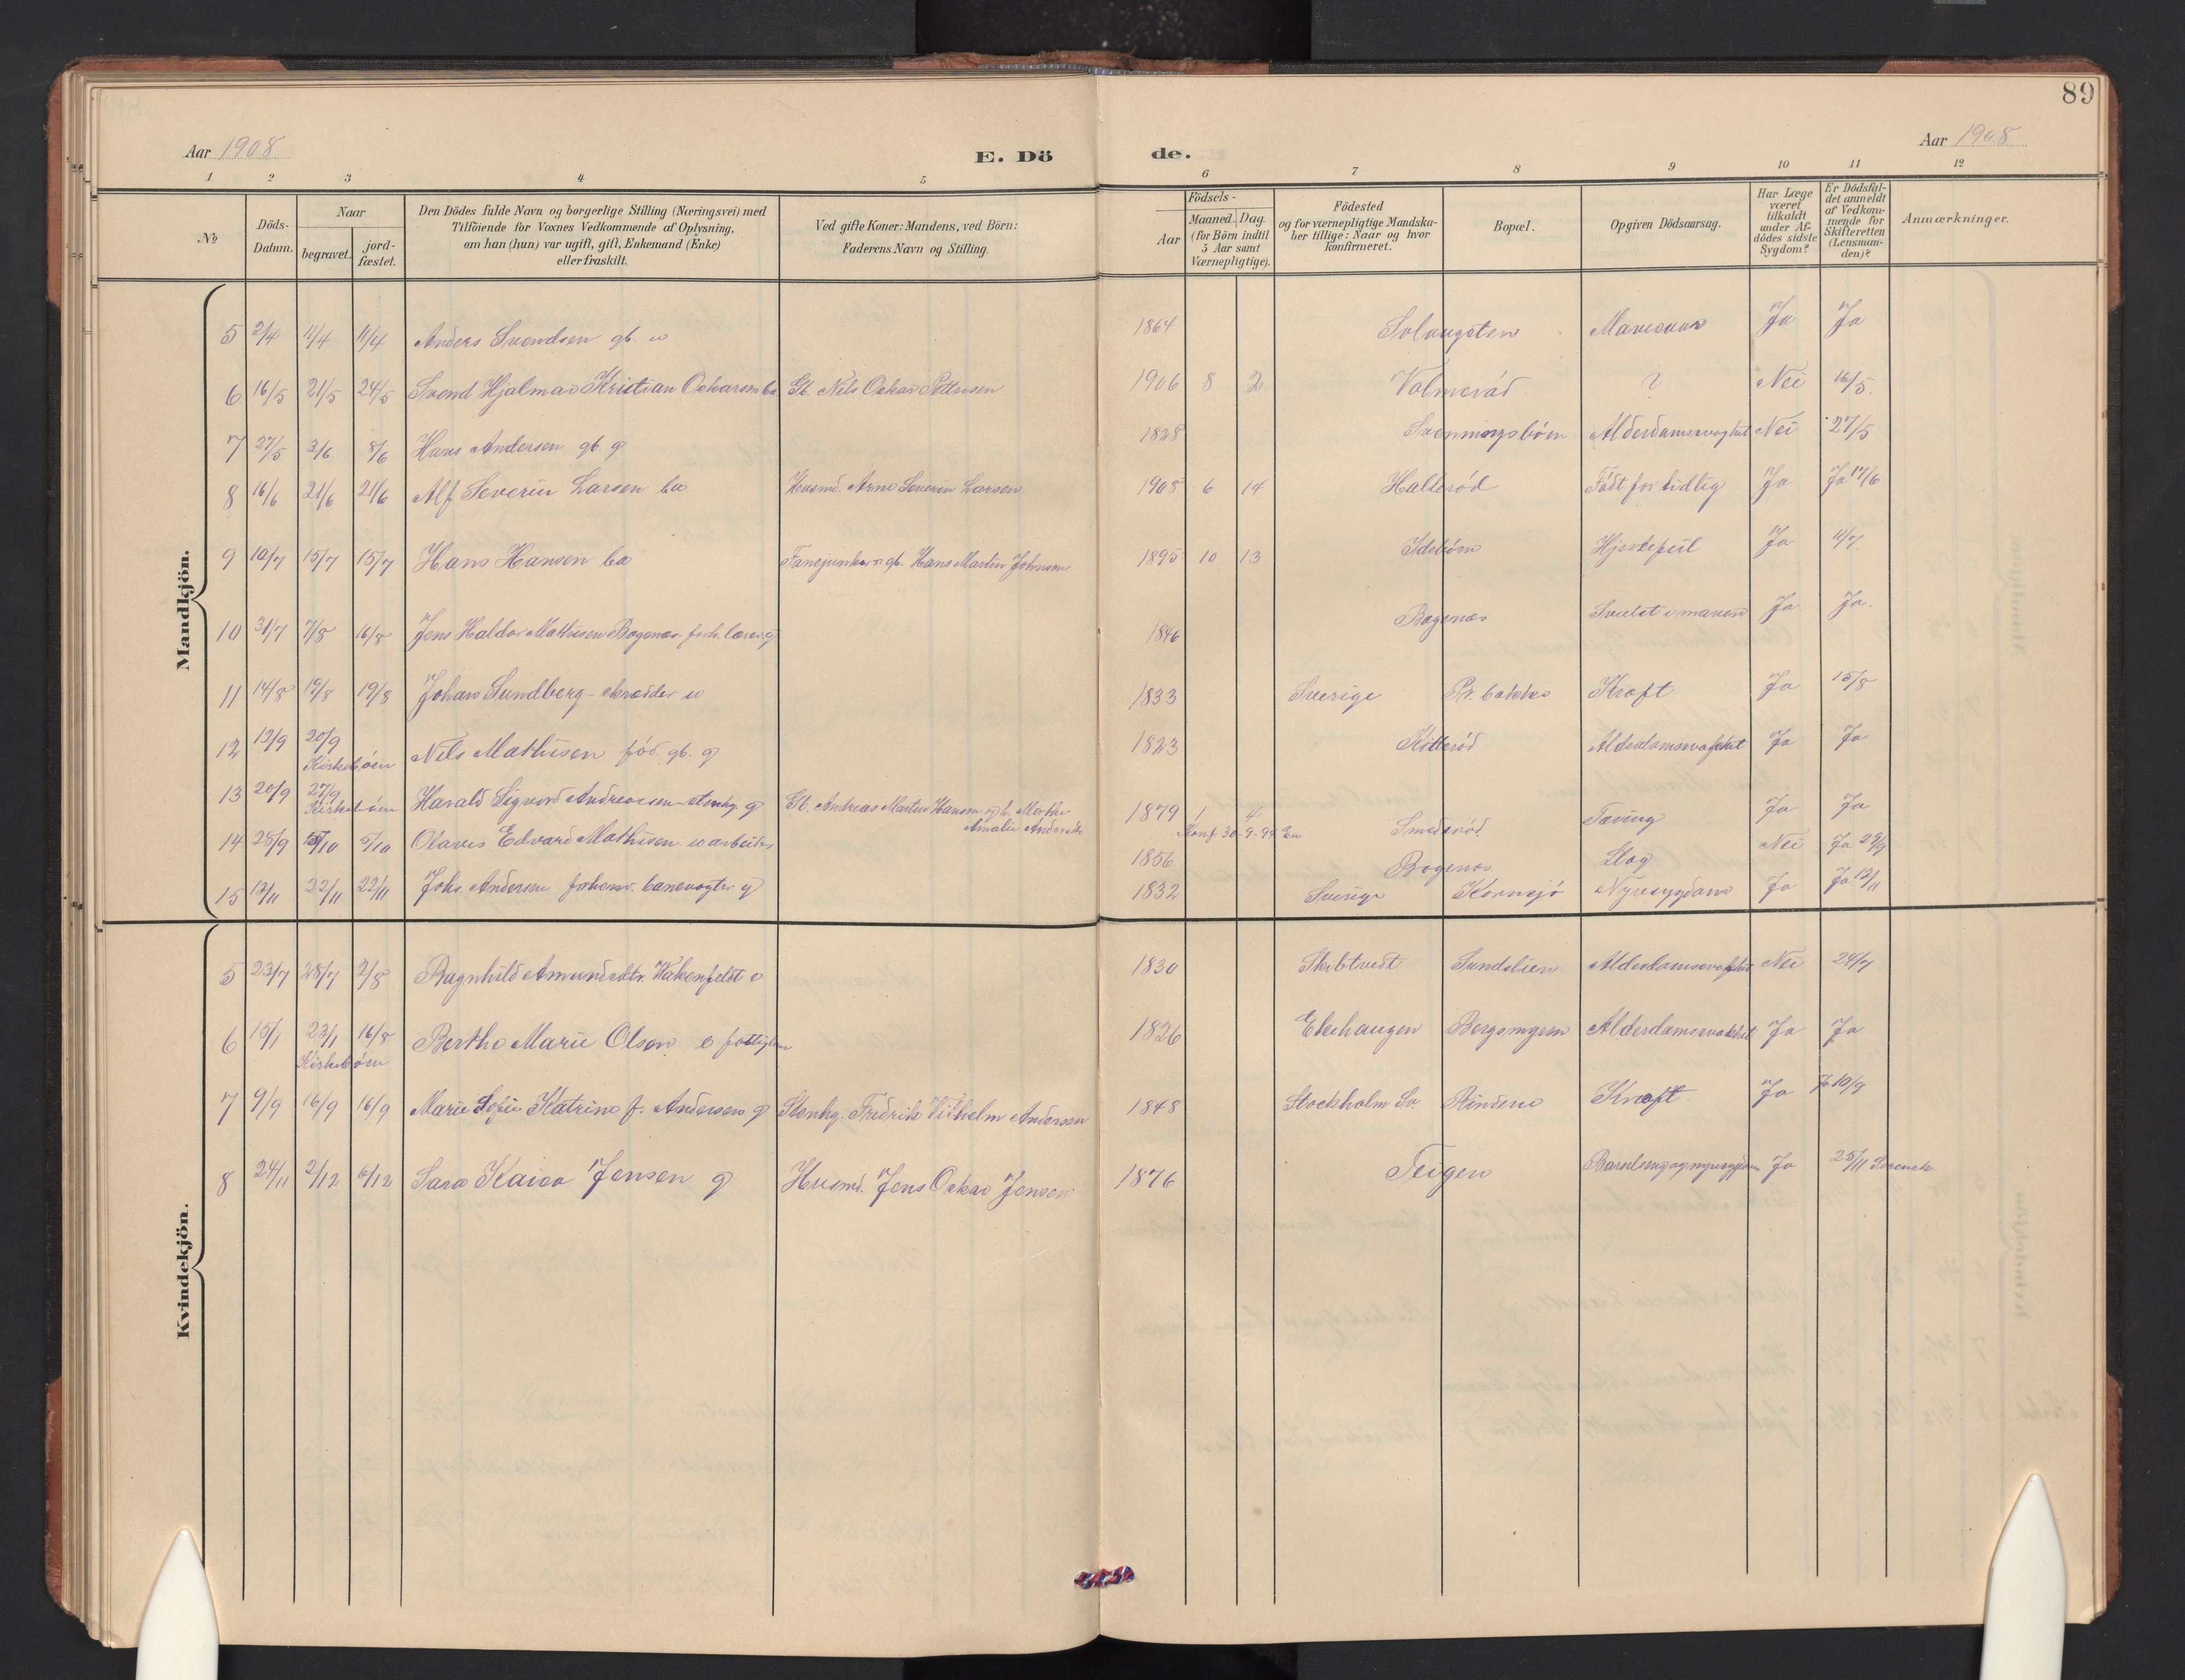 89
Aar 1908
E. Dö
de.
Aar 1908
1 2 3 4 5 6 7 8 9 10 11 12
No
Döds-Datum.
Naar
begravet.
jord-fæstet.
Den Dödes fulde Navn og borgerlige Stilling (Næringsvei) med
Tilföiende for Voxnes Vedkommende af Oplysning,
om han (hun) var ugift, gift, Enkemand (Enke)
eller fraskilt.
Ved gifte Koner: Mandens, ved Börn:
Faderens Navn og Stilling.
Födsels-
Aar
Maaned. Dag.
(for Börn indtil
5 Aar samt
Værnepligtige).
Födested
og for værnepligtige Mandska-
ber tillige: Naar og hvor
konfirmeret.
Bopæl.
Opgiven Dödsaarsag.
Har Læge
været
tilkaldt
under Af-
dödes sidste
Sygdom?
Er Dödsfal-
det anmeldt
af Vedkom-
mende for
Skifteretten
(Lensman-
den)?
Anmærkninger.
Mandkjön.
5 2/4 11/4 11/4 Anders Svendsen gb. 1864 Solaugsten Ja Ja
6 16/5 21/5 24/5 Svend Hjalmar Kristian Oskarsen ba Gb. Nils Oskar Pettersen 1906 8 2 Volmerød ? Nei 16/5
7 27/5 3/6 8/6 Hans Andersen gb. g 1828 Svenningsbøen Alderdomssvaghet Nei 27/5
8 16/6 21/6 21/6 Alf Severin Larsen ba Husmd. Arne Severin Larsen 1908 6 14 Hallerød Født for tidlig Ja Ja 17/6
9 10/7 15/7 15/7 Hans Hansen ba Fanejunker gb. Hans Martin Johnsen 1895 10 13 Idebøen Hjertefeil Ja 11/7
10 31/7 7/8 16/8 Jens Haldor Mathisen Bogenæs forh. lærer g 1846 Bogenæs Svulst i maven Ja Ja
11 14/8 19/8 19/8 Johan Sundberg - skrædder 1833 Sverige Pr. bakke Kræft Ja 15/8
12 12/9 20/9 Kirkebøen Nils Mathisen fød. gb. g 1823 Kitterød Alderdomssvaghet Ja Ja
13 20/9 27/9 Kirkebøen Harald Sigvard Andreassen - stenhg. g Gb. Andreas Martin Hansen og h. Marthe
Amalie Andersdr 1879 1 4 Konf 30-9-94 En Smederød Tæring Ja Ja
14 28/9 5/10 5/10 Olaves Edvard Mathisen arbeider 1856 Bogenæs Slag Nei Ja 29/9
15 12/11 22/11 22/11 Johs. Andersen forhenv. banevogter g 1832 Sverige Kornsjø Nyresygdom Ja Ja 12/11
Kvindekjön.
5 23/7 28/7 2/8 Ragnhild Amundsdtr. Wakenfeldt e 1830 Skibtvedt Sundslien Alderdomssvaghet Nei 24/7
6 15/1 23/1 16/8 Kirkebøen Berthe Marie Olsen e fattiglem 1826 Ekehaugen Bergsmyren Alderdomssvakhet Ja Ja
7 9/9 16/9 16/9 Marie Sofie Katrine f. Andersen g Stenhg. Fredrik Vilhelm Andersen 1848 Stockholm Sv. Rindene Kræft Ja Ja 10/9
8 24/11 2/12 6/12 Sara Kaisa Jensen g Husmd. Jens Oskar Jensen 1876 Teigen Barselseng og nyresygdom Ja 25/11 Svensk